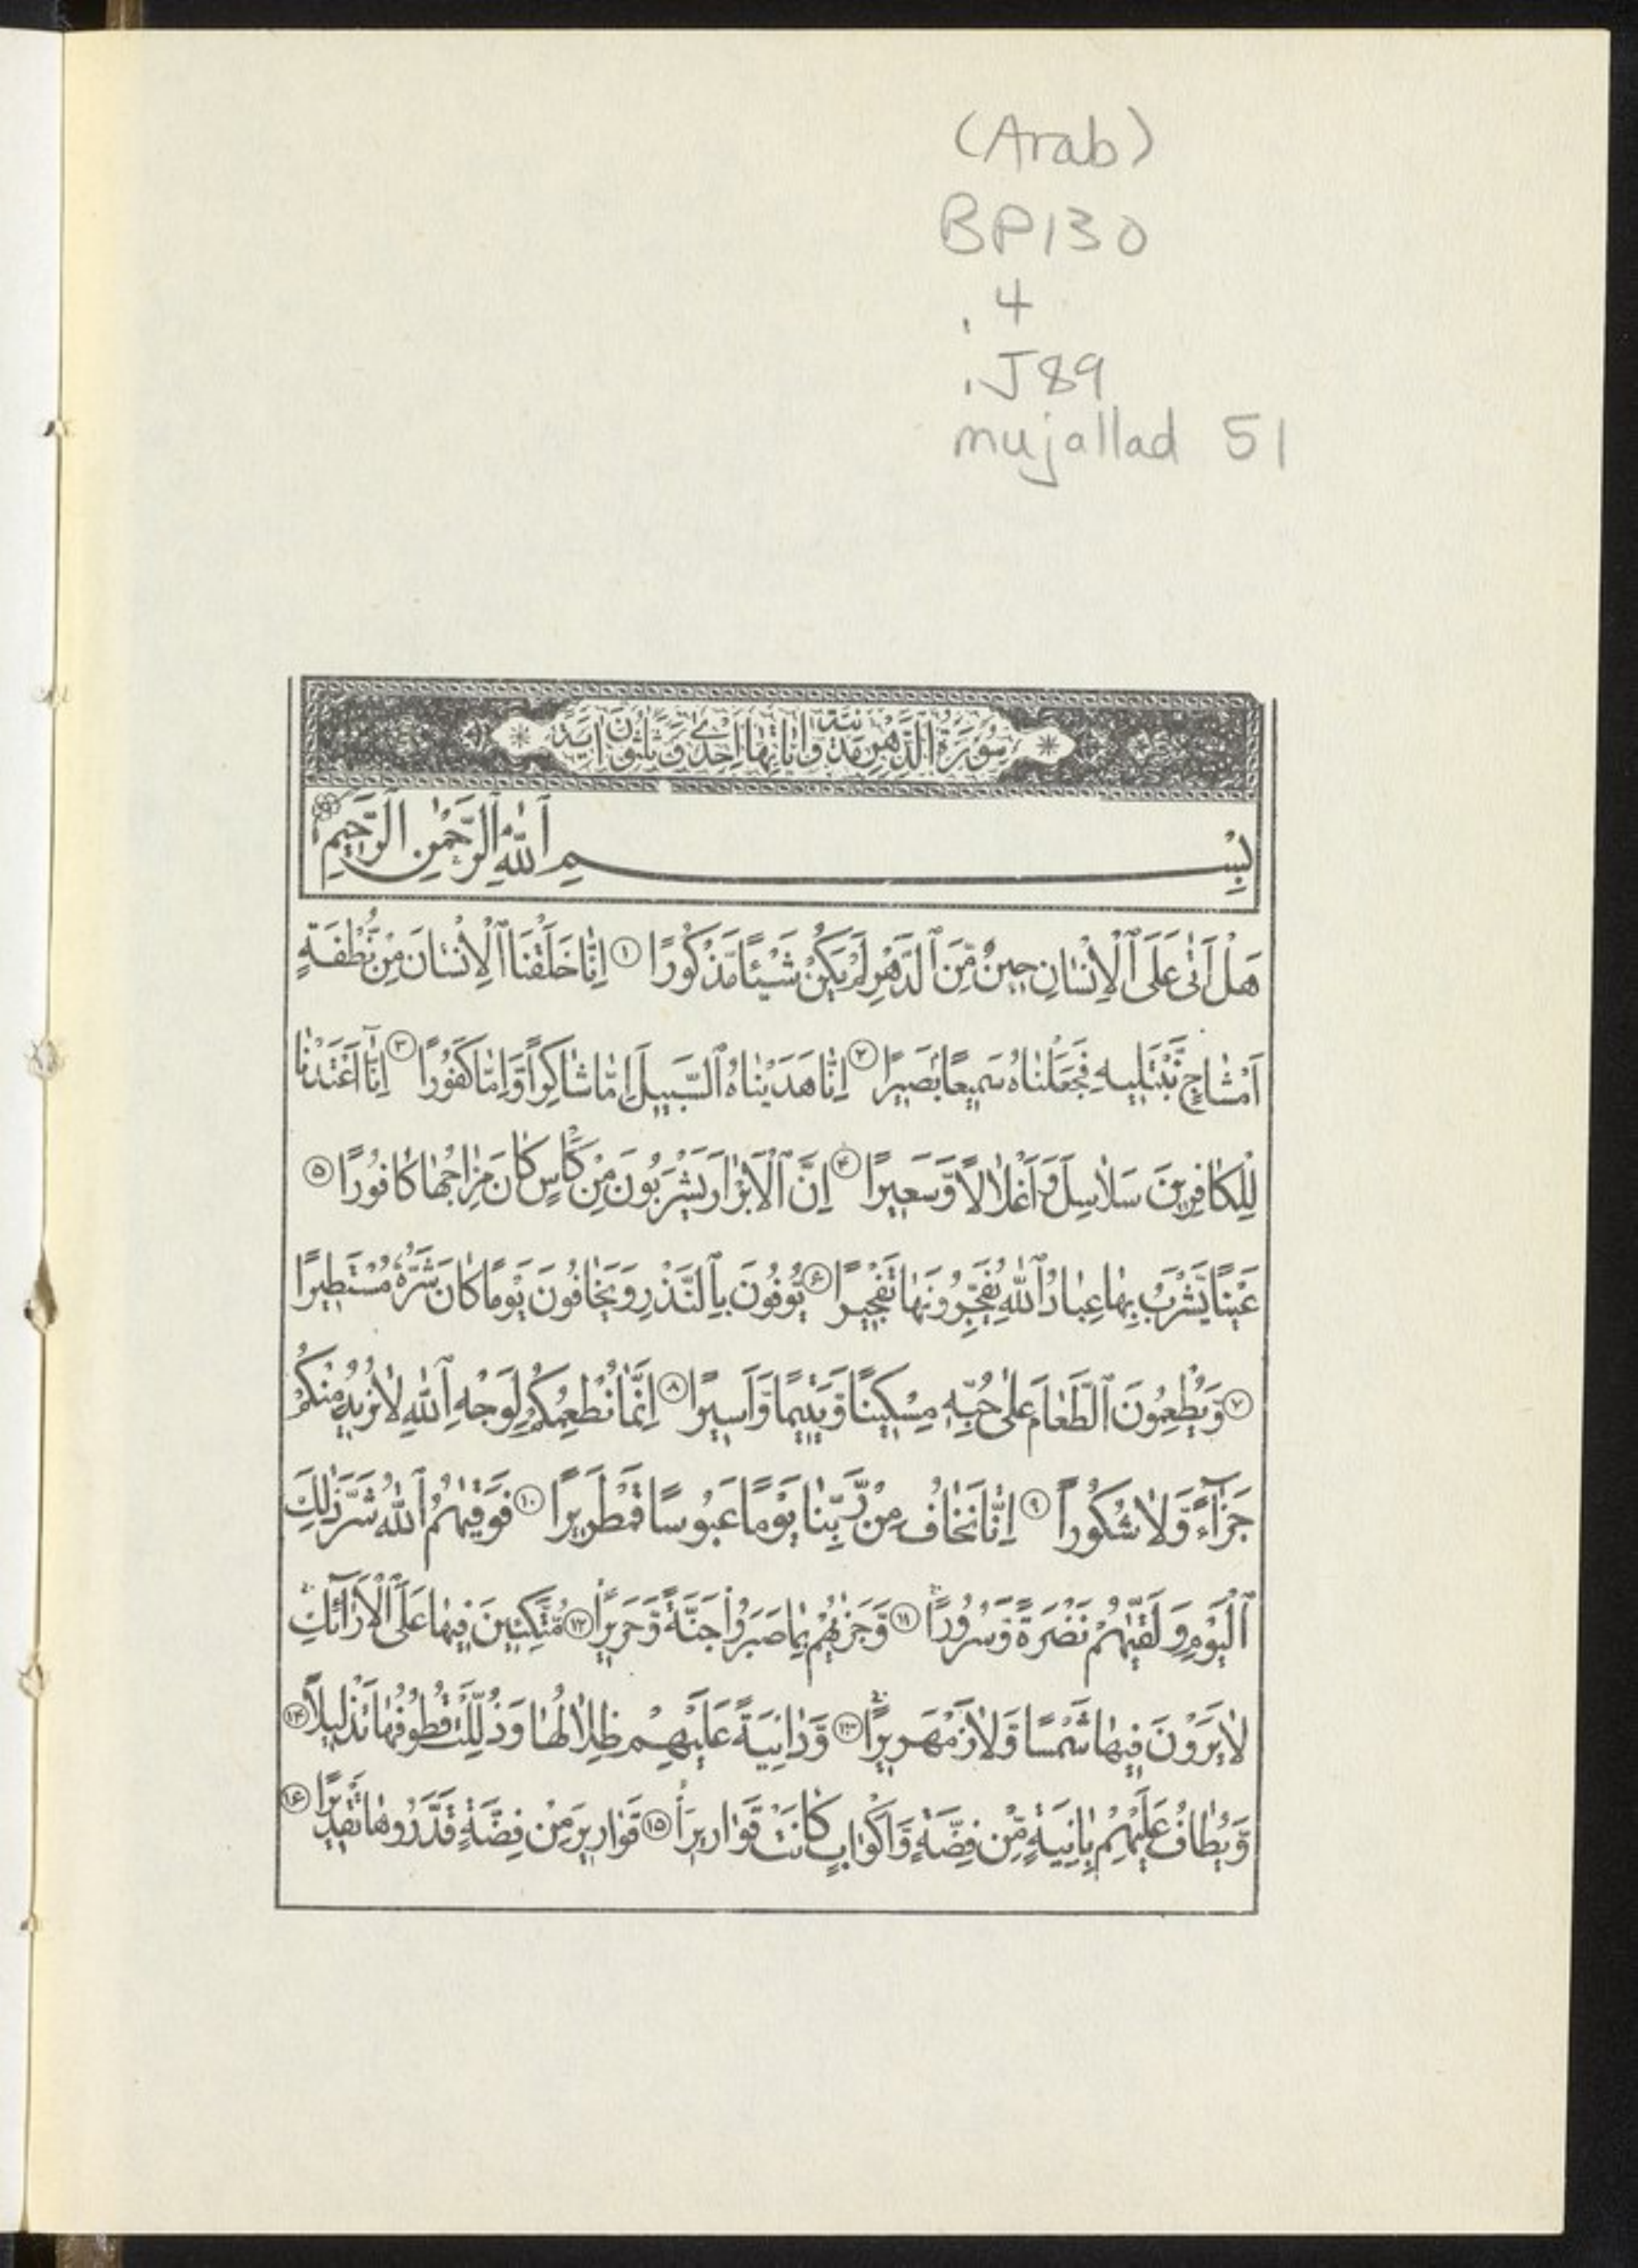 (Arab)
BP130
.4
.J89
mujallad 51
سُورَةُ الدَّهْرِ مَدَنِيَّةٌ وَايَاتُهَا اِحْدَى وَثَلَثُونَ ايَةً
بِسْمِ ٱللّٰهِ ٱلرَّحْمٰنِ ٱلرَّحِيمِ
هَلْ اَتٰى عَلَى ٱلْاِنْسٰانِ حِينٌ مِّنَ ٱلدَّهْرِ لَمْ يَكُنْ شَيْئًا مَّذْكُورًا ۱ اِنّٰا خَلَقْنَا ٱلْاِنْسٰانَ مِنْ نُّطْفَةٍ
اَمْشٰاجٍ نَّبْتَلِيهِ فَجَعَلْنٰاهُ سَمِيعًا بَصِيرًا ۲ اِنّٰا هَدَيْنٰاهُ ٱلسَّبِيلَ اِمّٰا شٰاكِراً وَّاِمّٰا كَفُورًا ۳ اِنّٰٓا اَعْتَدْنٰا
لِلْكٰافِرِينَ سَلٰاسِلَ وَاَغْلٰالًا وَّسَعِيرًا ۴ اِنَّ ٱلْاَبْرٰارَ يَشْرَبُونَ مِنْ كَأْسٍ كٰانَ مِزٰاجُهٰا كٰافُورًا ۵
عَيْنًا يَّشْرَبُ بِهٰا عِبٰادُ ٱللّٰهِ يُفَجِّرُونَهٰا تَفْجِيرًا ۶ يُوفُونَ بِٱلنَّذْرِ وَيَخٰافُونَ يَوْمًا كٰانَ شَرُّهُ مُسْتَطِيرًا
۷ وَيُطْعِمُونَ ٱلطَّعٰامَ عَلٰى حُبِّهٖ مِسْكِينًا وَّيَتِيمًا وَّاَسِيرًا ۸ اِنَّمٰا نُطْعِمُكُمْ لِوَجْهِ ٱللّٰهِ لٰا نُرِيدُ مِنْكُمْ
جَزٰٓاءً وَّلٰا شُكُوراً ۹ اِنّٰا نَخٰافُ مِنْ رَّبِّنٰا يَوْمًا عَبُوسًا قَمْطَرِيرًا ۱۰ فَوَقٰيهُمُ ٱللّٰهُ شَرَّ ذٰلِكَ
ٱلْيَوْمِ وَلَقّٰيهُمْ نَضْرَةً وَّسُرُورًا ۱۱ وَجَزٰيهُمْ بِمٰا صَبَرُوا جَنَّةً وَّحَرِيرًا ۱۲ مُتَّكِئِينَ فِيهٰا عَلَى ٱلْاَرٰٓائِكِ
لٰا يَرَوْنَ فِيهٰا شَمْسًا وَّلٰا زَمْهَرِيرًا ۱۳ وَّدٰانِيَةً عَلَيْهِمْ ظِلٰالُهٰا وَذُلِّلَتْ قُطُوفُهٰا تَذْلِيلًا ۱۴
وَيُطٰافُ عَلَيْهِمْ بِاٰنِيَةٍ مِّنْ فِضَّةٍ وَّاَكْوٰابٍ كٰانَتْ قَوٰارِيرَاْ ۱۵ قَوٰارِيرَ مِنْ فِضَّةٍ قَدَّرُوهٰا تَقْدِيرًا ۱۶